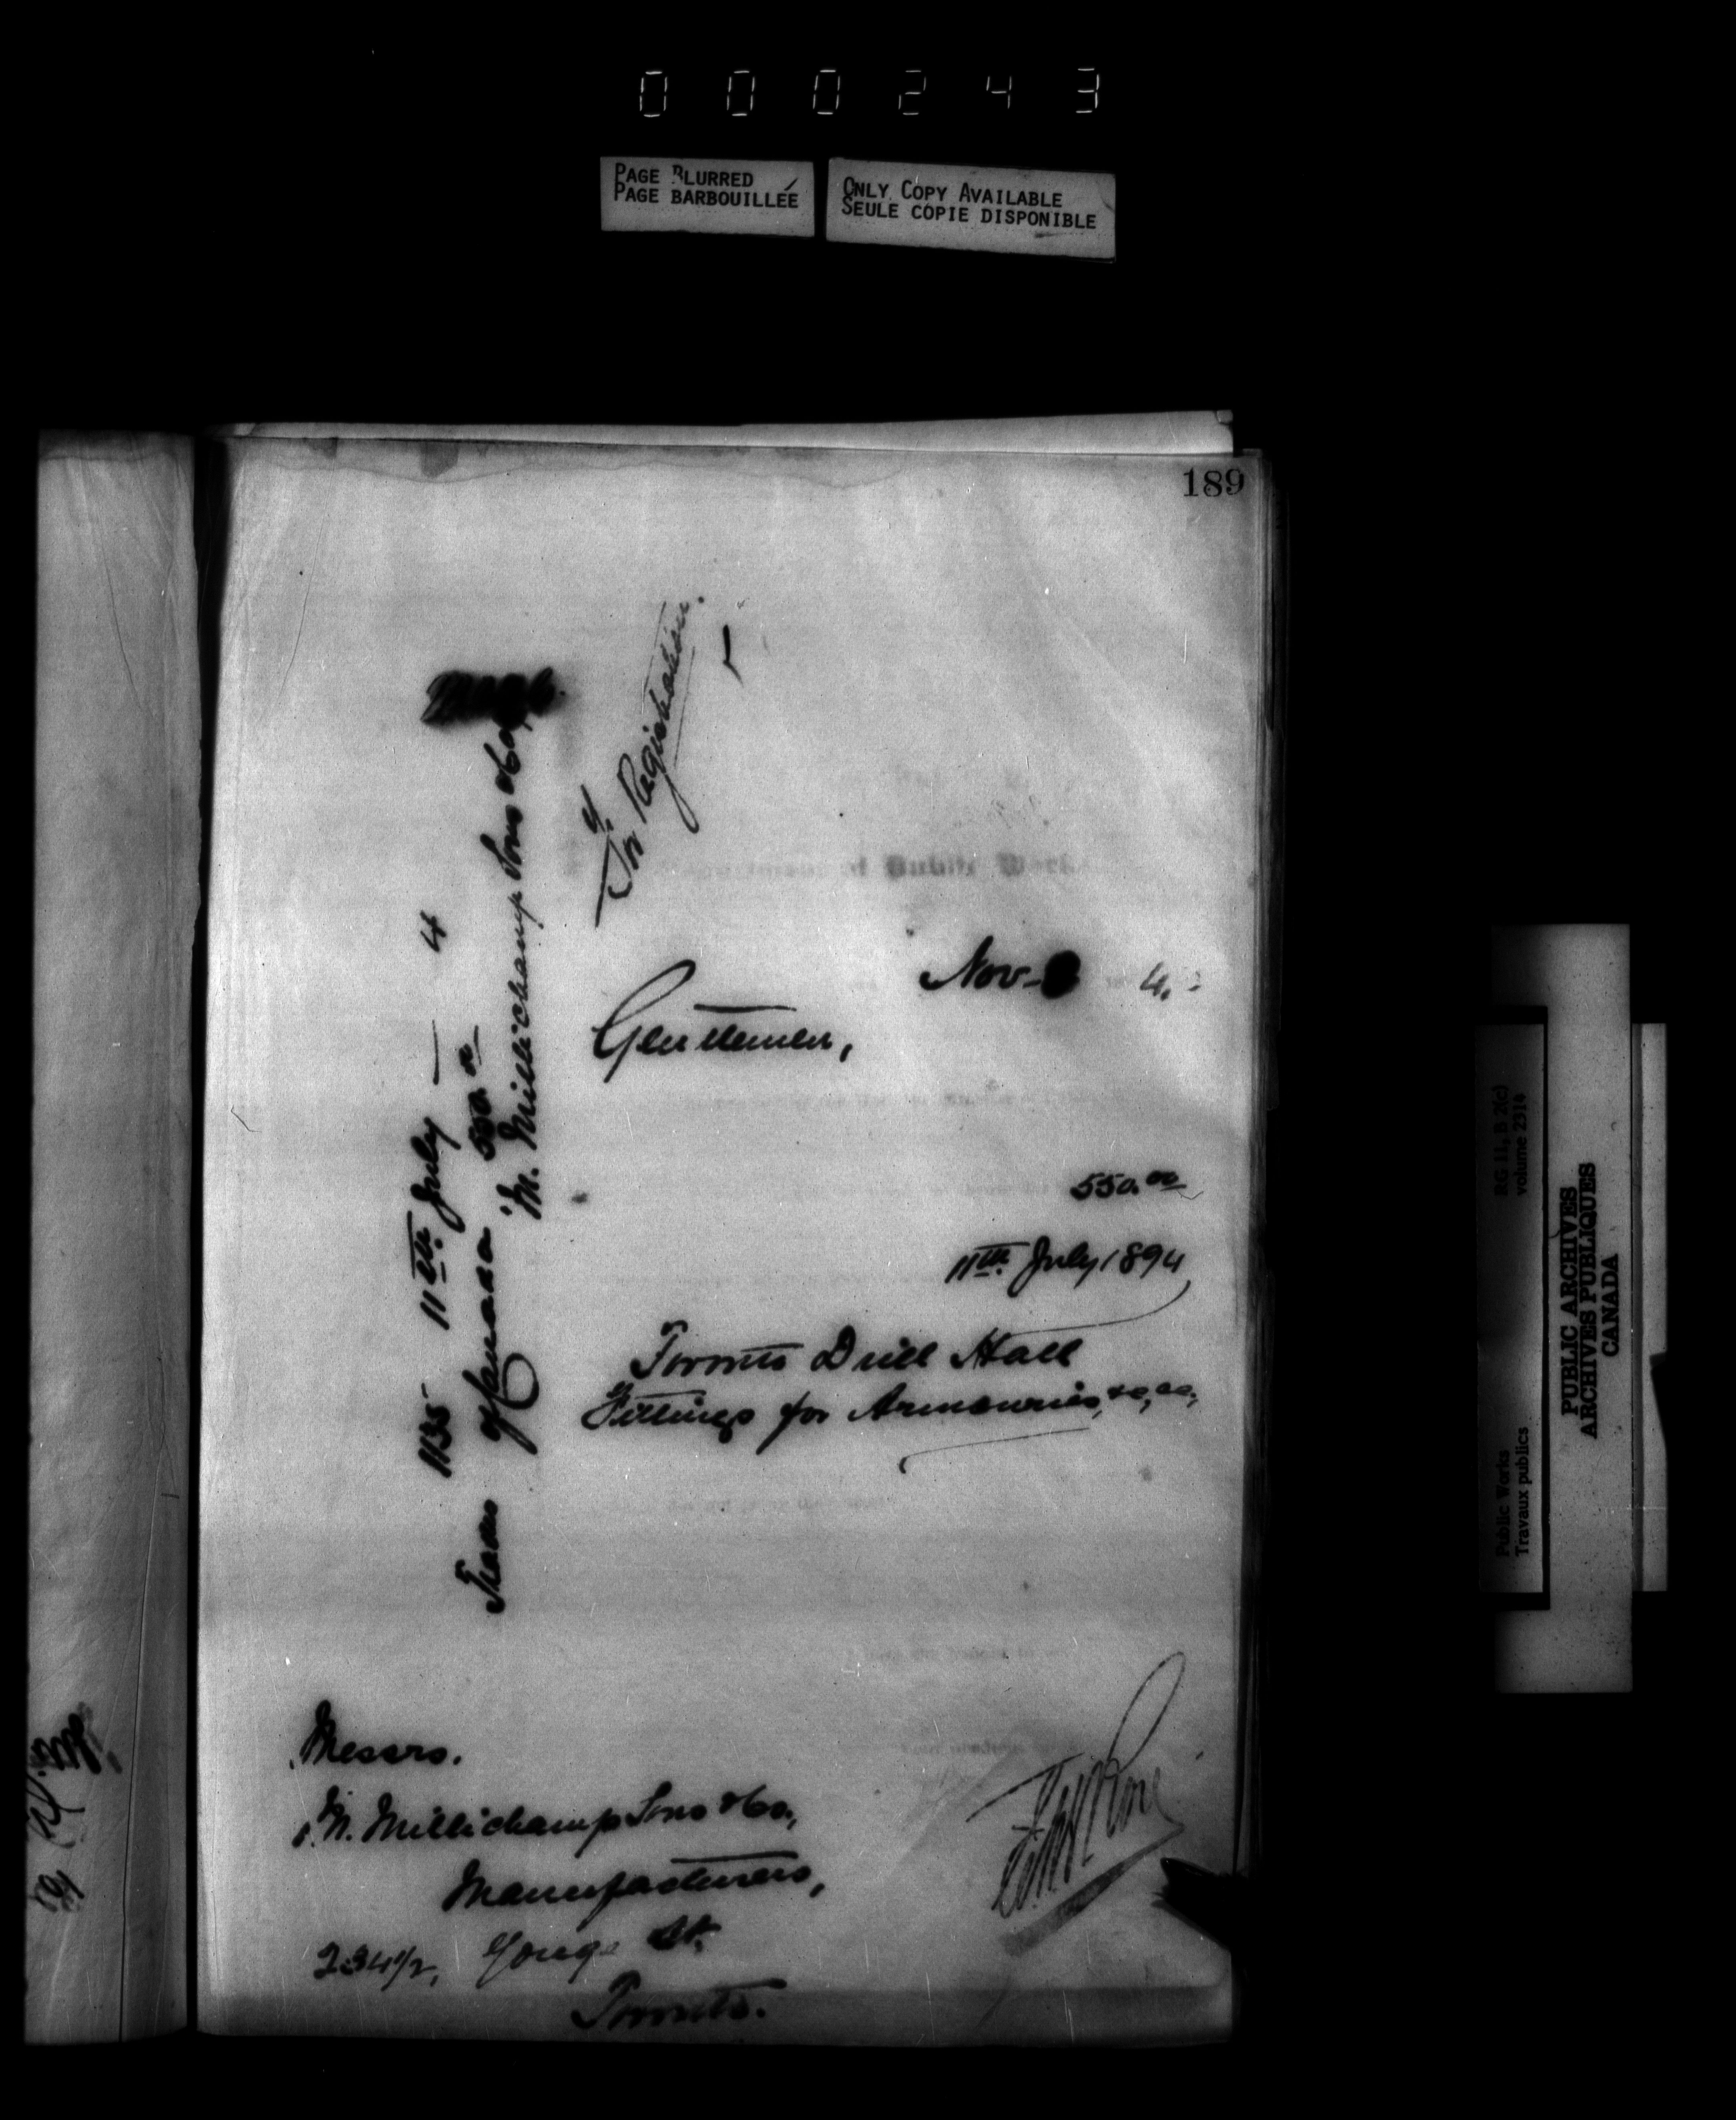 000243
PAGE BLURRED
PAGE BARBOUILLÉE
ONLY COPY AVAILABLE
SEULE COPIE DISPONIBLE
189
1135 11th. July — 4
of Canada 550.00
M. Millichamp Sons & Co.,
For Registration.
Department of Public Works
Nov- 4.
Gentlemen,
550.00
11th. July 1894
Toronto Drill Hall
Fittings for Armouries, &c, &c,
Messrs.
M. Millichamp Sons & Co.,
Manufacturers,
234 1/2, Yonge St.
Toronto.
RG 11, B 2(c)
volume 2314
Public Works
Travaux publics
PUBLIC ARCHIVES
ARCHIVES PUBLIQUES
CANADA